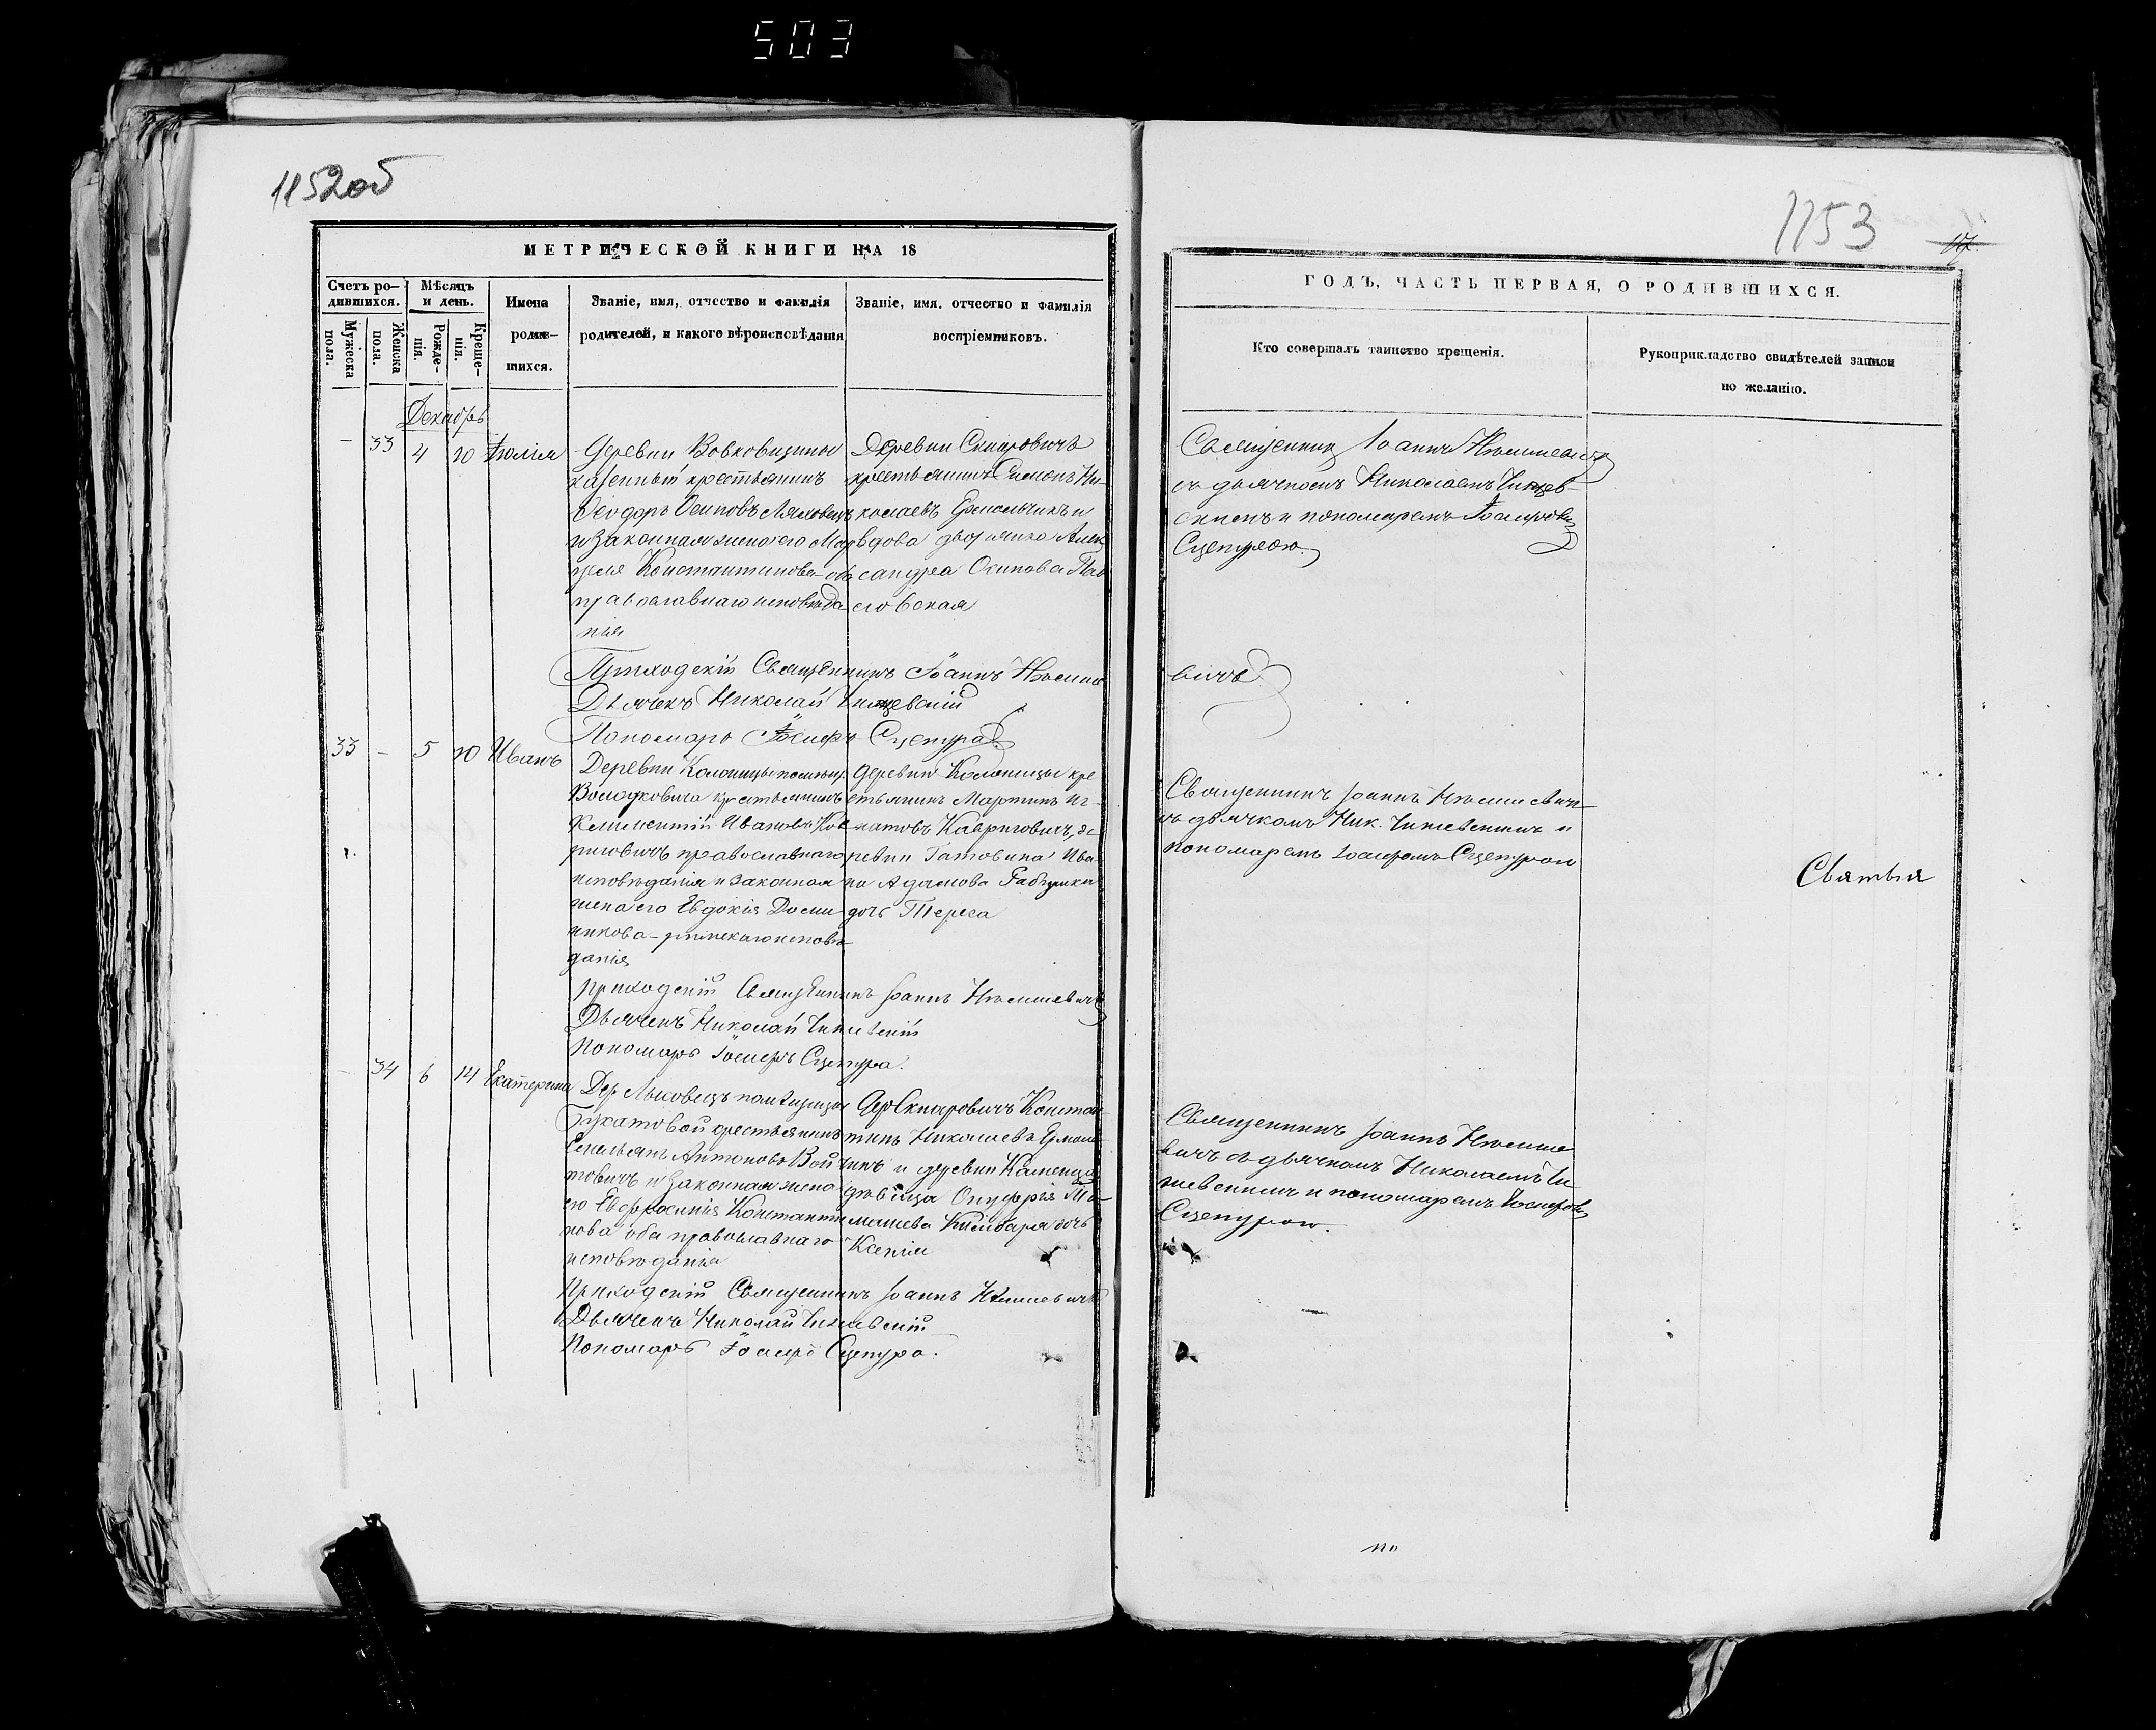 503
1152об
МЕТРИЧЕСКОЙ КНИГИ НА 18
Счетъ ро-
дившихся.
Мѣсяцъ
и день.
Имена
родив-
шихся.
Званіе, имя, отчество и фамилія
родителей, и какого вѣроисповѣданія
Званіе, имя, отчество и фамилія
воспріемниковъ.
Мужеска
пола.
Женска
пола.
Рожде-
нія.
Креще-
нія.
Декабрь
— 33 4 10 Іюлія
Деревни Вовковщины
казенный крестьянинъ
Ѳеодоръ Осиповъ
и законная жена его Мар
Константинова оба
православнаго исповѣда
нія
Деревни Скпаровичъ
крестьянинъ Симонъ Ни-
колаевъ Ермольчикъ и
вдова дворянка Алек
сандра Осипова Пав
ловская
Приходскій Священникъ Іоаннъ Нѣмше
Дьячекъ Николай
Пономарь Іосифъ Сцепура
33 — 5 10 Иванъ
Деревни Колоницы помѣщ.
Володковича крестьянинъ
Климентій Ивановъ Кав
риговичъ православнаго
исповѣданія и законная
жена его Евдокія Доми
никова - римскаго исповѣ
данія
деревни Колоницы кре
стьянинъ Мартинъ Иг-
натовъ Кавриговичъ, де
ревни Гатовина Ива
на Адамова
дочь Тереса
Приходскій Священникъ Іоаннъ Нѣмшевичъ
Дьячекъ Николай
Пономарь Іосифъ Сцепура.
— 34 6 14 Екатерина
Дер. помѣщицы
крестьянинъ
Емельянъ Антоновъ Вой
товичъ и законная жена
его Евфросинія Константи
нова оба православнаго
исповѣданія
Дер Скпаровичъ Констан
тинъ Николаевъ Ермоль
чикъ и деревни Каменца
дѣвица Онуфрія То
машева Кимбаря дочь
Ксенія
Приходскій Священникъ Іоаннъ Нѣмшевичъ
Дьячекъ Николай
Пономарь Іосифъ Сцепура.
1153
117.
ГОДЪ, ЧАСТЬ ПЕРВАЯ, О РОДИВШИХСЯ.
Кто совершалъ таинство крещенія.
Рукоприкладство свидѣтелей записи
по желанію.
Священникъ Іоаннъ Нѣмшевичъ
съ дьячкомъ Николаемъ
и пономаремъ Іосифомъ
Сцепурою.
вичъ
Священникъ Іоаннъ Нѣмшевичъ
съ дьячкомъ Ник. и
пономаремъ Іосифомъ Сцепурою
Святыя
Священникъ Іоаннъ Нѣмше
вичъ съ дьячкомъ Николаемъ
и пономаремъ Іосифомъ
Сцепурою.